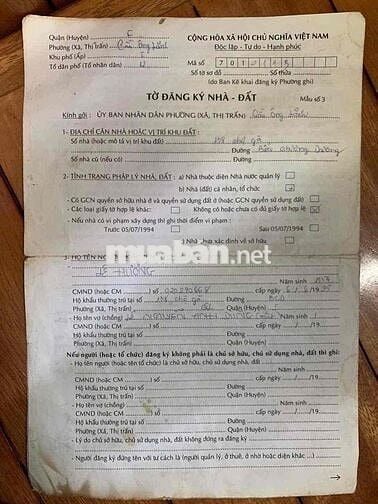 Quận (Huyện)
CỘNG HÒA XÃ HỘI CHỦ NGHĨA VIỆT NAM
Phường (Xã, Thị Trấn) Cầu Ông Lãnh
Độc lập - Tự do - Hạnh phúc
Khu phố (Ấp)
Tổ dân phố (Tổ nhân dân)
Mã số 701
Số tờ sơ đồ Số thửa
(do Ban Kê khai đăng ký Phường ghi)
TỜ ĐĂNG KÝ NHÀ - ĐẤT
Mẫu số 3
Kính gởi : ỦY BAN NHÂN DÂN PHƯỜNG (XÃ, THỊ TRẤN) Cầu Ông Lãnh
1- ĐỊA CHỈ CĂN NHÀ HOẶC VỊ TRÍ KHU ĐẤT :
Số nhà (hoặc mô tả vị trí khu đất) chợ gà
Đường Bến Chương Dương
Số nhà cũ (nếu có) Đường
2- TÌNH TRẠNG PHÁP LÝ NHÀ, ĐẤT : a) Nhà thuộc diện Nhà nước quản lý
b) Nhà (đất) cá nhân, tổ chức
- Có GCN quyền sở hữu nhà ở và quyền sử dụng đất ở (hoặc GCN quyền sử dụng đất)
- Các loại giấy tờ hợp lệ khác: Không có hoặc chưa có đủ giấy tờ hợp lệ
- Nếu nhà có vi phạm xây dựng thì ghi thời điểm vi phạm :
Trước 05/07/1994 Sau 05/07/1994
c) Nhà chưa xác định về sở hữu
muaban.net
3- HỌ TÊN
CMND (hoặc CM) số 020290668 cấp ngày
Hộ khẩu thường trú tại số chợ gà Đường BCD
Phường (Xã, Thị trấn) Quận (Huyện)
- Họ tên vợ (chồng)
CMND (hoặc CM) số cấp ngày /19
Hộ khẩu thường trú tại số Đường
Phường (Xã, Thị trấn) Quận (Huyện)
Nếu người (hay tổ chức) đăng ký không phải là chủ sở hữu, chủ sử dụng nhà, đất thì ghi:
- Họ tên người (hoặc tên tổ chức) là chủ sở hữu, chủ sử dụng nhà, đất :
Năm sinh
CMND (hoặc CM) số cấp ngày / /19
Hộ khẩu thường trú tại số Đường
Phường (Xã, Thị trấn) Quận (Huyện)
- Họ tên vợ (chồng) Năm sinh
CMND (hoặc CM) số cấp ngày / /19
Hộ khẩu thường trú tại số Đường
Phường (Xã, Thị trấn) Quận (Huyện)
- Lý do chủ sở hữu, chủ sử dụng nhà, đất không đứng ra đăng ký
- Người đăng ký đứng tên với tư cách là (người quản lý, ở thuê, ở nhờ hoặc diện khác ...)